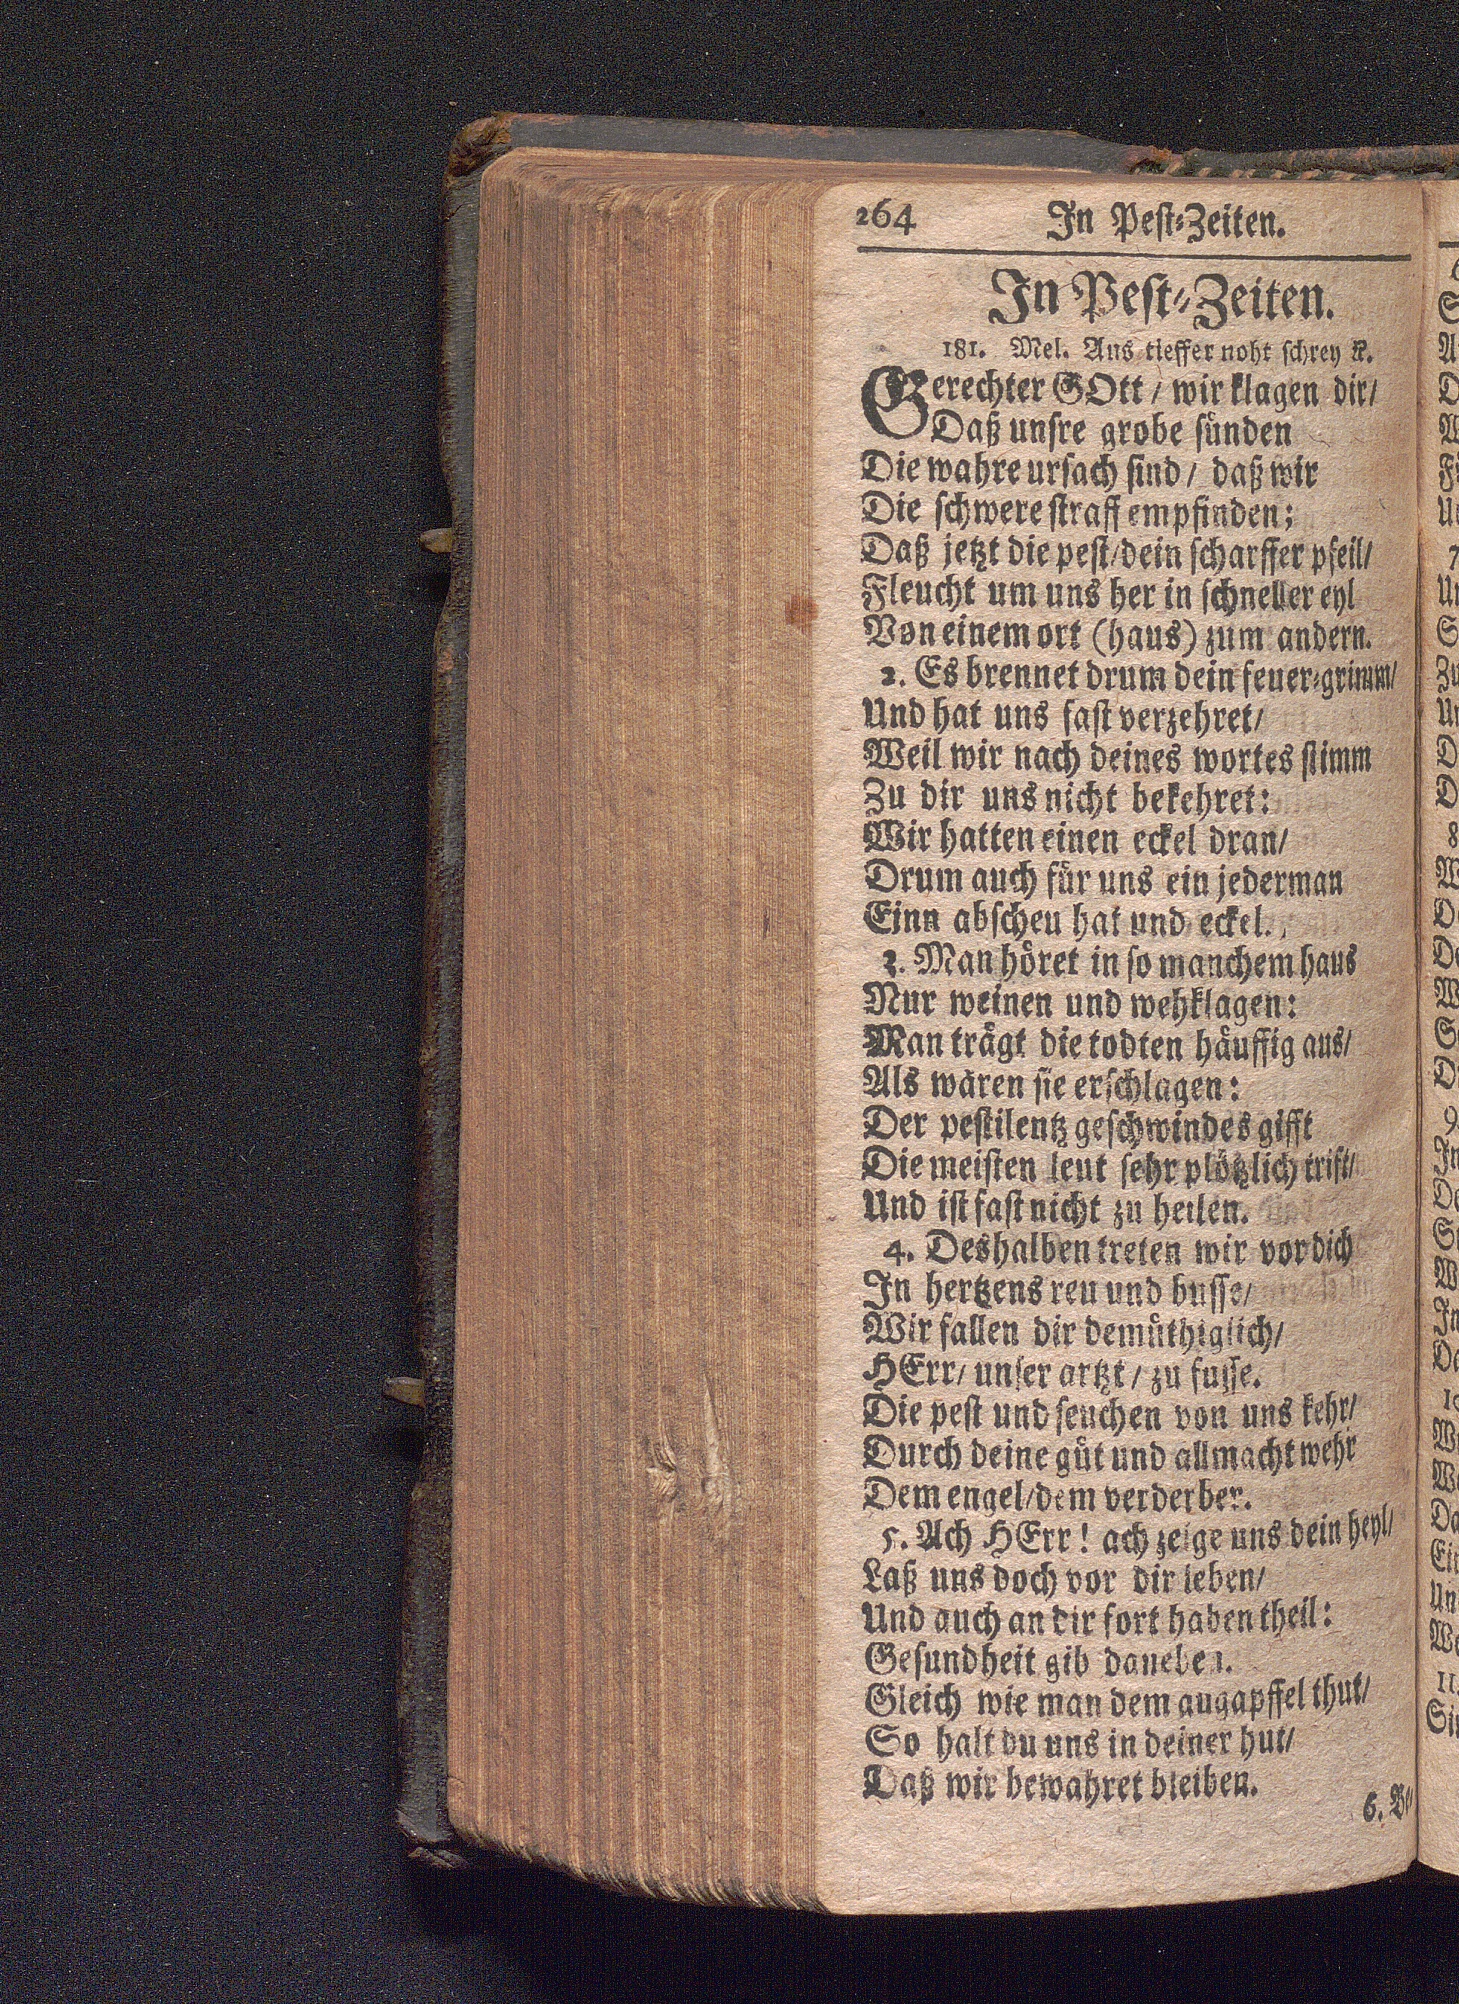 264 In Pest-Zeiten.
In Pest-Zeiten.
181. Mel. Aus tieffer noht schrey ꝛc.
Gerechter GOtt / wir klagen dir/
Daß unsre grobe sünden
Die wahre ursach sind / daß wir
Die schwere straff empfinden;
Daß jetzt die pest/dein scharffer pfeil/
Fleucht um uns her in schneller eyl
Von einem ort (haus) zum andern.
2. Es brennet drum dein feuer-grimm/
Und hat uns fast verzehret/
Weil wir nach deines wortes stimm
Zu dir uns nicht bekehret:
Wir hatten einen eckel dran/
Drum auch für uns ein jederman
Einn abscheu hat und eckel.
3. Man höret in so manchem haus
Nur weinen und wehklagen:
Man trägt die todten häuffig aus/
Als wären sie erschlagen:
Der pestilentz geschwindes gifft
Die meisten leut sehr plötzlich trift/
Und ist fast nicht zu heilen.
4. Deshalben treten wir vor dich
In hertzens reu und busse/
Wir fallen dir demüthiglich/
HErr/ unser artzt / zu fusse.
Die pest und seuchen von uns kehr/
Durch deine güt und allmacht wehr
Dem engel/dem verderber.
5. Ach HErr! ach zeige uns dein heyl/
Laß uns doch vor dir leben/
Und auch an dir fort haben theil:
Gesundheit gib daneben.
Gleich wie man dem augapffel thut/
So halt du uns in deiner hut/
Daß wir bewahret bleiben.
6. Be-